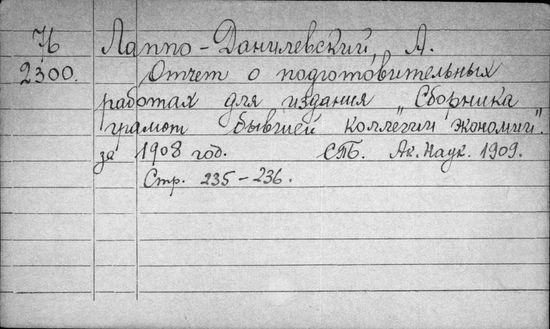 И Лаппо-Данилевский, А.
2300. Отчет о подготовительных
работах для издания „Сборника
грамот бывшей коллегии экономии".
за 1908 год. СПБ. Ак. Наук. 1909.
Стр. 235-236.